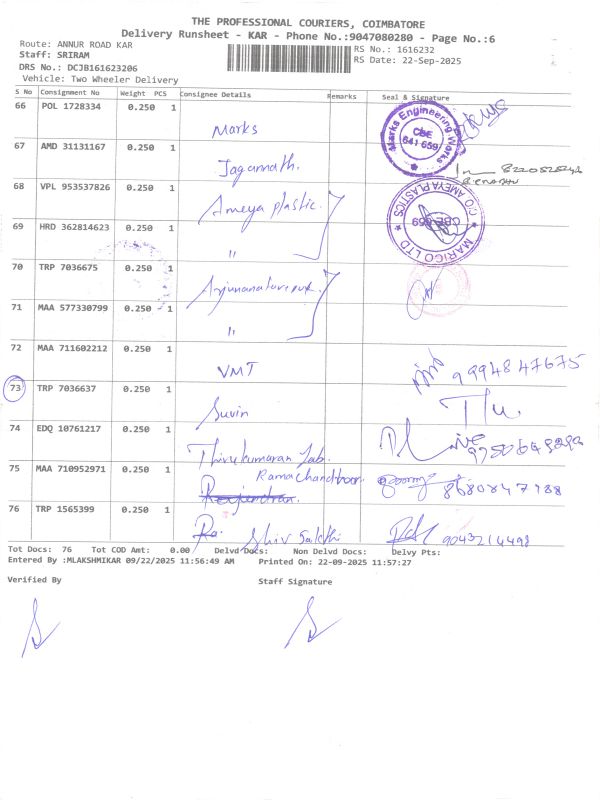 THE PROFESSIONAL COURIERS, COIMBATORE
Delivery Runsheet - KAR - Phone No.:9047080280 - Page No.:6
Route: ANNUR ROAD KAR
Staff: SRIRAM
RS No.: 1616232
DRS No.: DCJB161623206
RS Date: 22-Sep-2025
Vehicle: Two Wheeler Delivery
S No Consignment No Weight PCS Consignee Details Remarks Seal & Signature
66 POL 1728334 0.250 1 Marks
Marks Engineering Works CBE 641 659
67 AMD 31131167 0.250 1 Jagannath.
68 VPL 953537826 0.250 1 Ameya plastic.
C/O. AMEYA PLASTICS MARICO LTD
69 HRD 362814623 0.250 1 "
70 TRP 7036675 0.250 1
71 MAA 577330799 0.250 1 "
72 MAA 711602212 0.250 1 VMT 9994847675
73 TRP 7036637 0.250 1 Suvin
74 EDQ 10761217 0.250 1 Thirukumaran Lab.
75 MAA 710952971 0.250 1 Ramachandhran. 8680847988
76 TRP 1565399 0.250 1 Shiv Sakthi 9043214498
Tot Docs: 76 Tot COD Amt: 0.00 Delvd Docs: Non Delvd Docs: Delvy Pts:
Entered By :MLAKSHMIKAR 09/22/2025 11:56:49 AM Printed On: 22-09-2025 11:57:27
Verified By Staff Signature